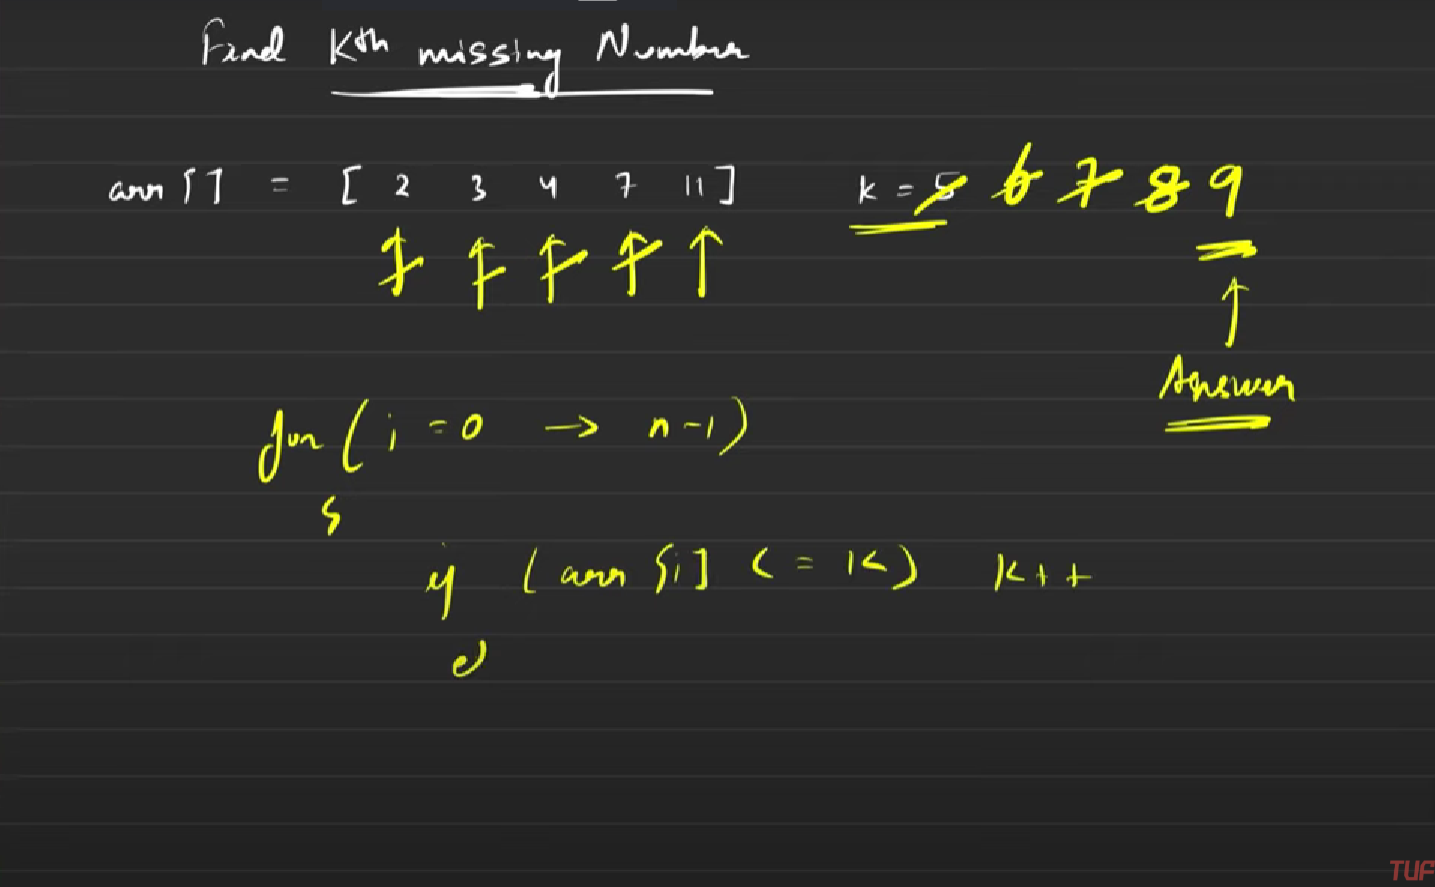 Find Kth missing Number
arr[] = [ 2 3 4 7 11 ] k = 5 6 7 8 9
Answer
for ( i = 0 → n-1)
{
if ( arr[i] <= K) K++
el
TUF